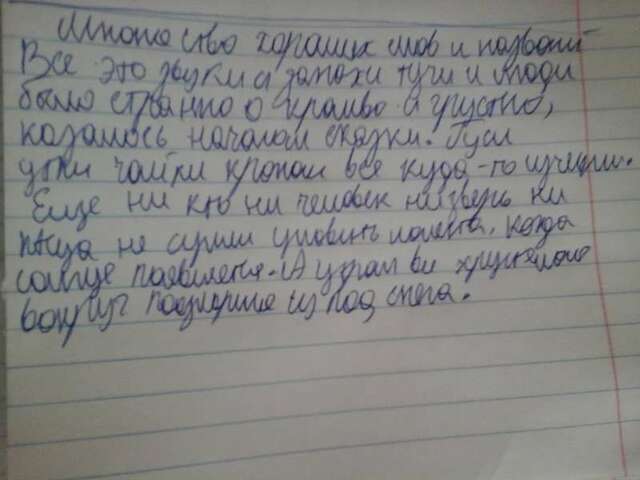 Множество хороших слов и названий
Все это звуки а запахи тучи и люди
было странно о краиво а грустно,
казалось началом сказки. Гуси
утки чайки кропали все куда-то изчезли.
Еще ни кто ни человек ни зверь ни
птица не сумели уловить момента, когда
солнце появиться. А
вокруг из под снега.